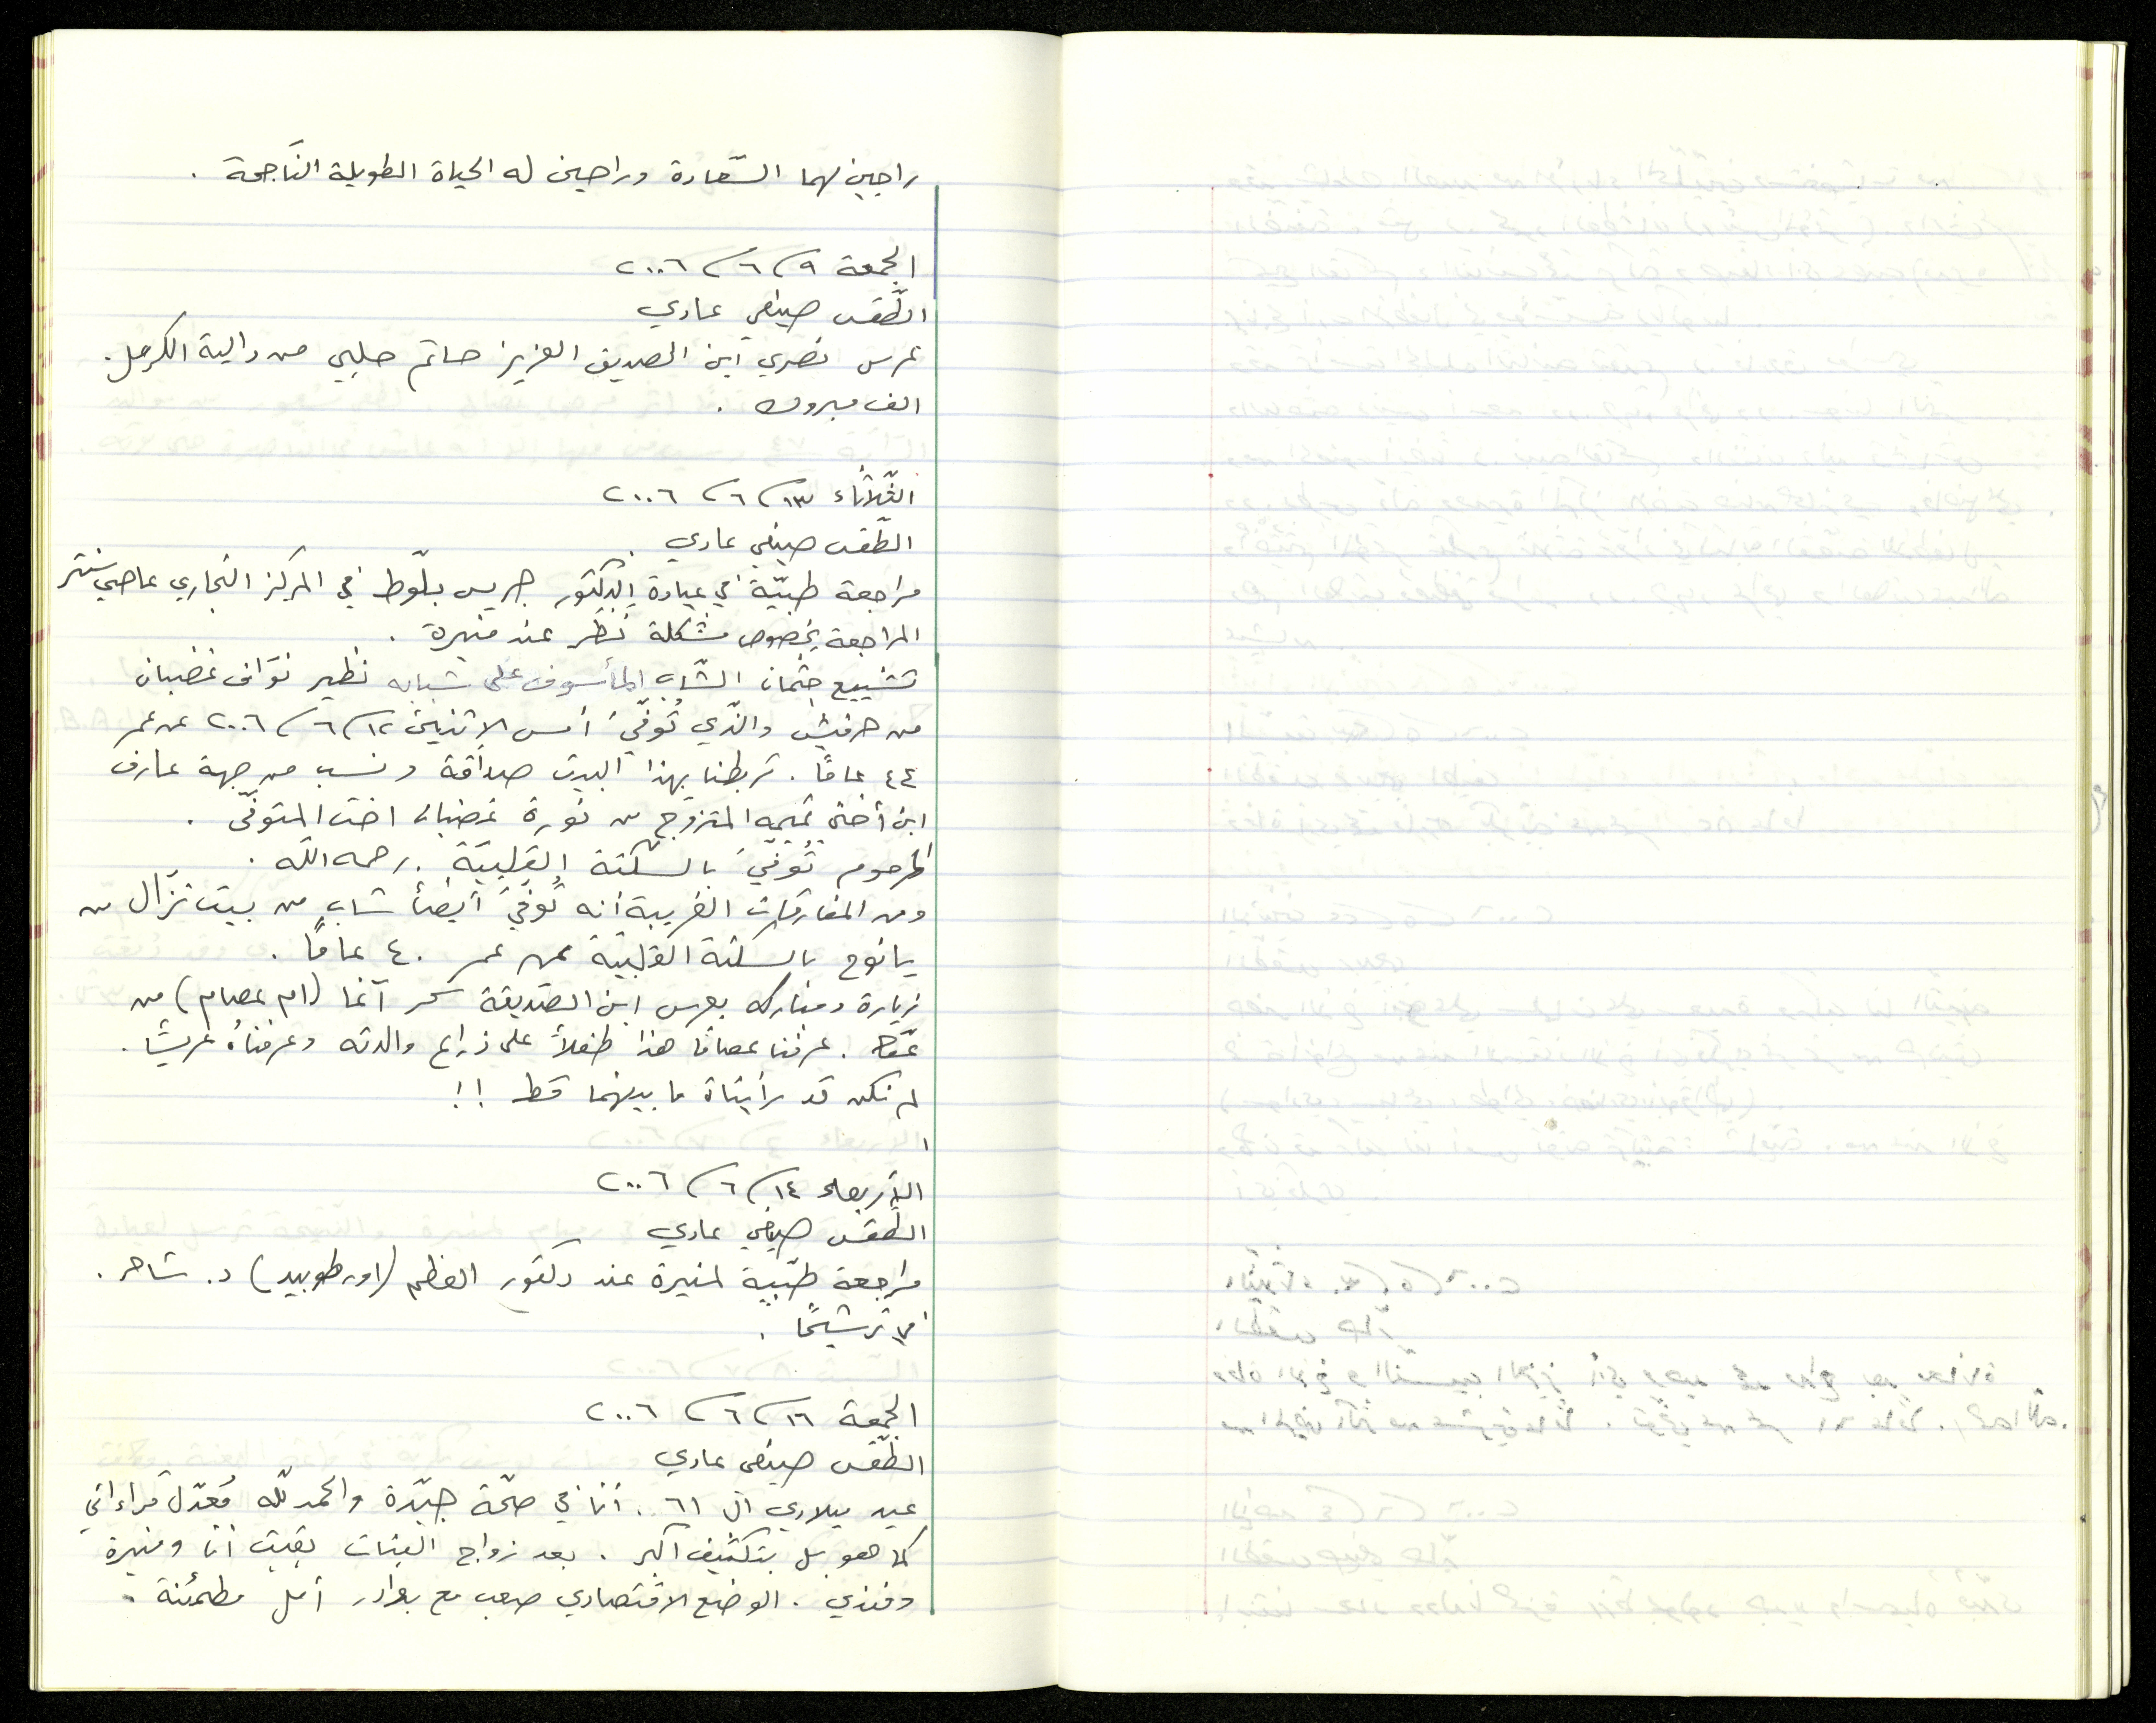 راجين لهما السّعادة وراجين له الحياة الطويلة النّاجحة .
الجمعة ٩/٦/٢٠٠٦
الطّقس صيفي عادي
عرس نصري ابن الصديق العزيز حاتم حلبي من دالية الكرمل .
الف مبروك .
الثّلاثاء ١٣/٦/٢٠٠٦
الطّقس صيفي عادي
مراجعة طبيّة في عيادة الدكتور جريس بلّوط في المركز التجاري عاصي سنتر
المراجعة بخصوص مشكلة نظر عند منيرة .
تشييع جثمان الشّاب المأسوف على شبابه نظير نوّاف غضبان
من حرفيش والذّي تُوفّيَ أمس الاثنين ١٢/٦/٢٠٠٦ عن عمر
٤٤ عامًا . تربطنا بهذا البيت صداقة ونسب من جهة عارف
ابن أختي تميمه المتزوّج من نورة غضبان اخت المتوفّى .
المرحوم تُوفّيَ بالسّكتة القلبيّة . رحمه اللّه .
ومن المفارقات الغريبة أنه تُوفّيَ أيضاً شاب من بيت نزّال من
يانوح بالسكتة القلبيّة عن عمر ٤٠ عامًا .
زيارة ومباركه بعرس ابن الصّديقة سحر آغا (ام عصام) من
عكّا . عرفنا عصامًا هذا طفلاً على ذراع والدته وعرفناهُ عريسًا .
لم نكن قد رأيناهُ ما بينهما قط !!
الأربعاء ١٤/٦/٢٠٠٦
الطّقس صيفي عادي
مراجعة طبّية لمنيرة عند دكتور العظم (اورطوبيد) د. شاحر .
في ترشيحًا .
الجمعة ١٦/٦/٢٠٠٦
الطّقس صيفي عادي
عيد ميلادي ال ٦١ . أنا في صحّة جيّدة والحمد للّه مُعدّل قراءاتي
كما هو بل بتكثيف اكبر . بعد زواج البنات بقيت انا ومنيرة
وفندي . الوضع الاقتصادي صعب مع بوادر أمل مطمئنة .